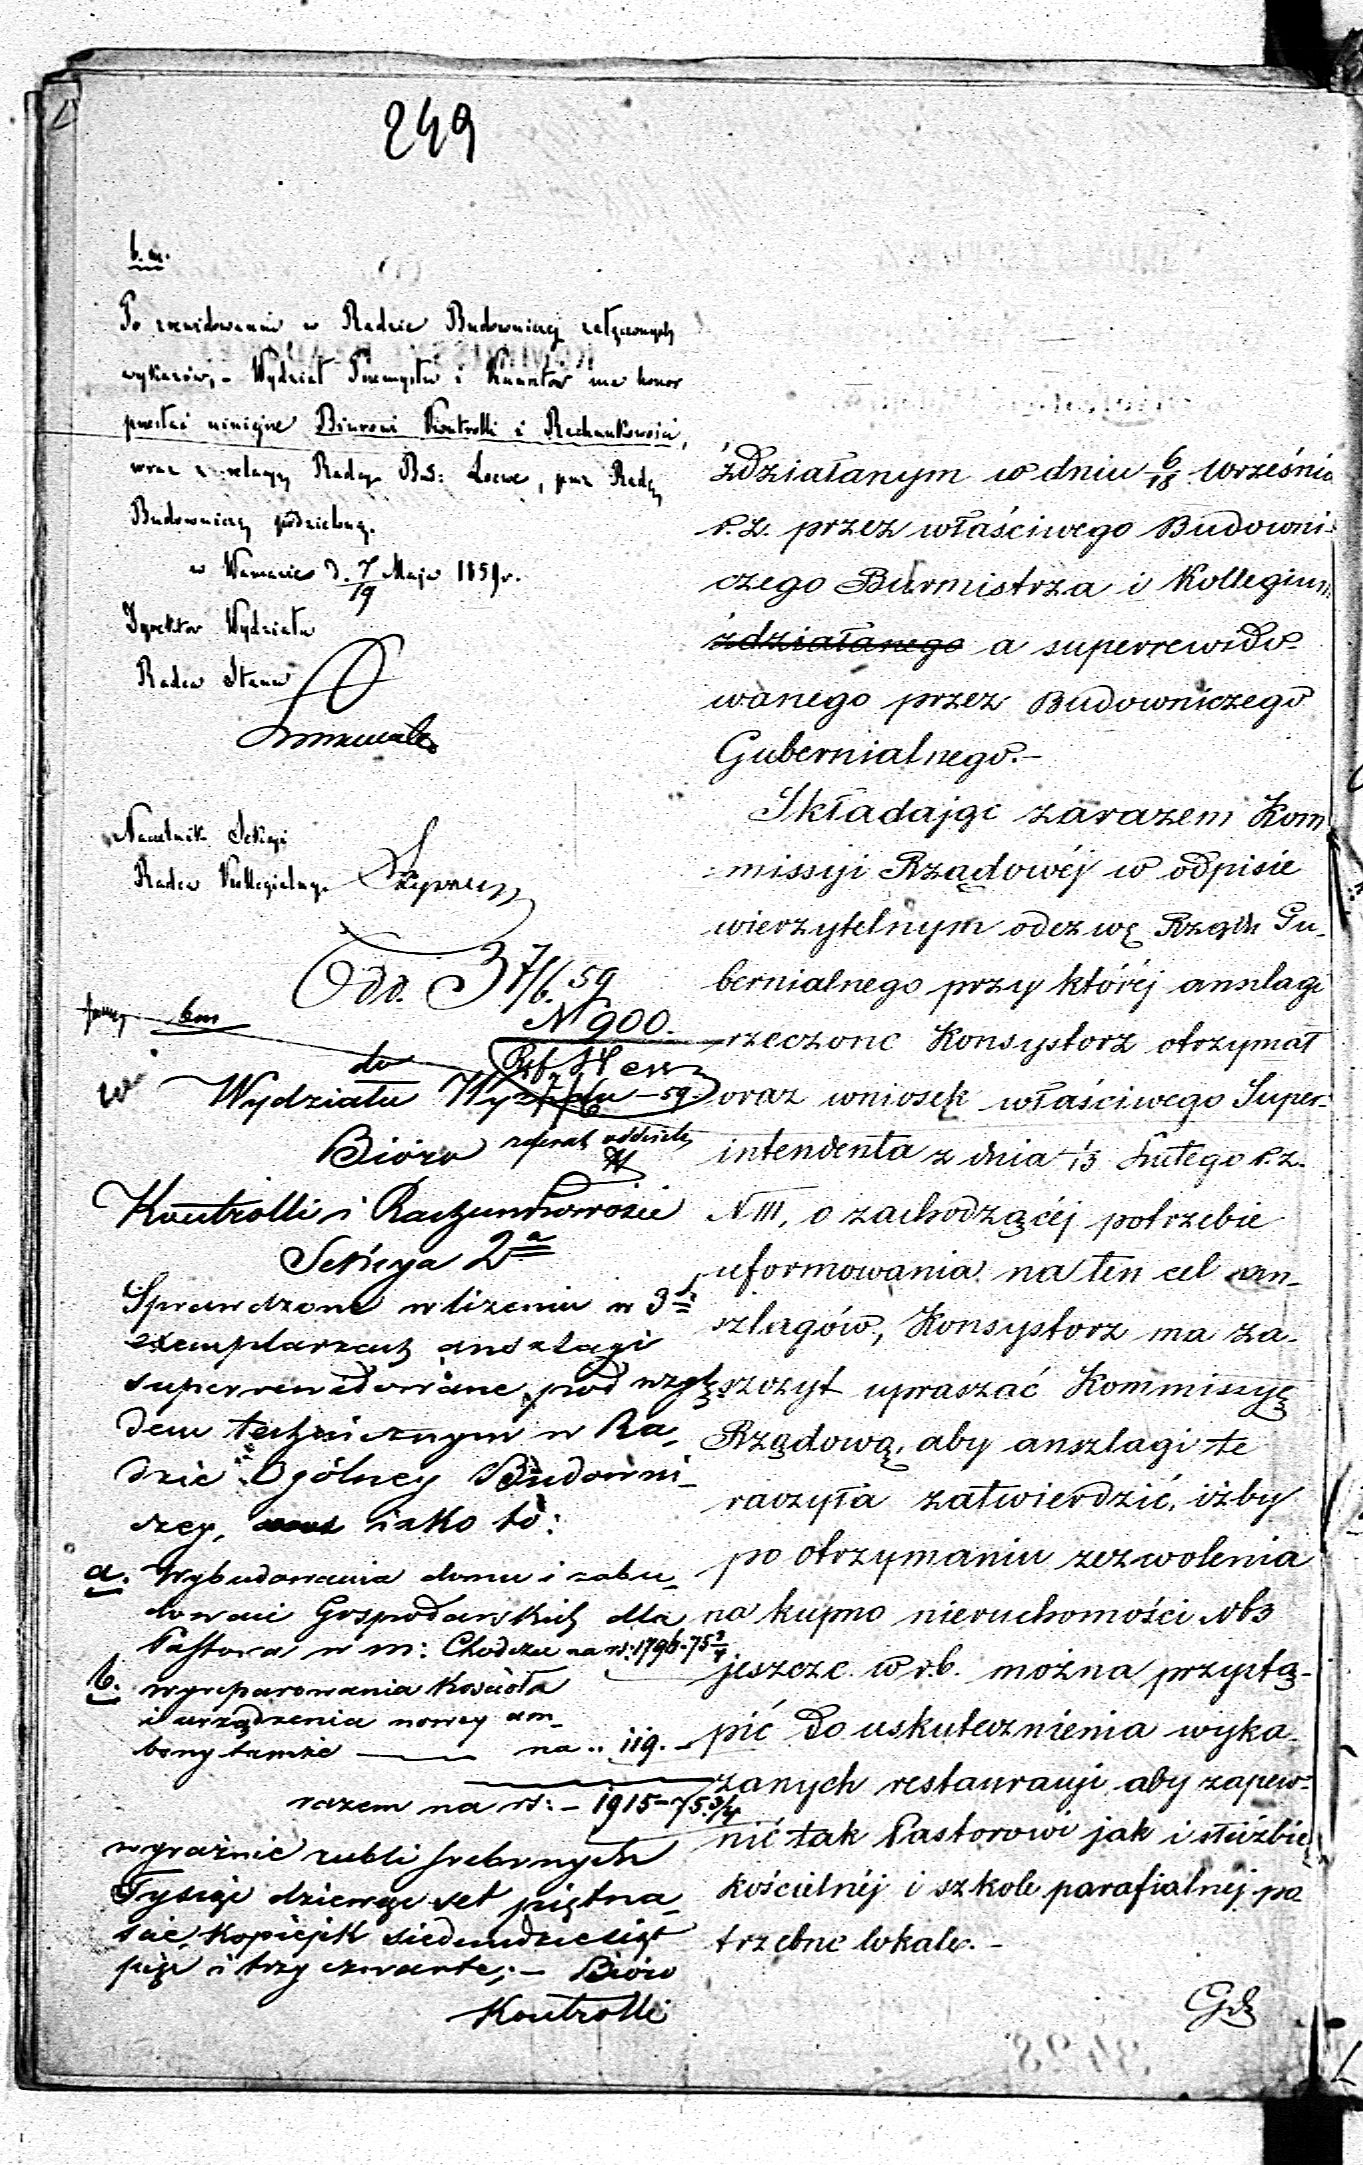 249
b. m.
Po zrewidowaniu w Radzie Budowniczej załączonych
wykazów, - Wydział Przemysłu i Kunsztów ma honor
przesłać niniejsze Biurowi Kontrolli i Rachunkowości,
wraz z relacyą Radcy Bud: Loewe, przez Radę
Budowniczą podzieloną.
w Warszawie d. 7/19 Maja 1859 r.
Dyrektor Wydziału
Radca Stanu
Naczelnik Sekcyi
Radca Kollegialny
Odd. 3 7/6. 59
N 900.
do
Wydziału Wyznań
Bióro
Kontrolli i Rachunkowości
Sekcya 2a
Sprawdzone w liczeniu w 3ch
exemplarzach anszlagi
superrewidowane pod wzglę
dem technicznym w Ra-
dzie Ogólney Budowni-
czey, iako to:
a. Wybudowania domu i zabu-
dowań Gospodarskich dla
Pastora w m: Chodczu na rs: 1796-75 3/4
b. wyreparowania Kościoła
i urządzenia nowey am-
bony tamże — na .. 119. -
razem na rs: - 1915-75 3/4
wyraźnie rubli srebrnych
Tysiąc dziewięćset piętna-
ście, kopiejek siedmdziesiąt
pięć i trzy czwarte; - Bióro
Kontrolli
zdziałanym w dniu 6/18 Września
r.z. przez właściwego Budowni-
czego Burmistrza i Kollegium
zdziałanego a superrewido-
wanego przez Budowniczego
Gubernialnego.-
Składając zarazem Kom
missyi Rządowéj w odpisie
wierzytelnym odezwę Rządu Gu-
bernialnego przy któréj anszlagi
rzeczone Konsystorz otrzymał
oraz wniosek właściwego Super-
intendenta z dnia 1/13 Lutego r.z.
N 111, o zachodzącéj potrzebie
uformowania na ten cel an-
szlagów, Konsystorz ma za-
szczyt upraszać Kommissyę
Rządową, aby anszlagi te
raczyła zatwierdzić, iżby
po otrzymaniu zezwolenia
na kupno nieruchomości N 63
jeszcze w r.b. można przystą-
pić do uskutecznienia wyka-
zanych restauracyi, aby zapew-
nić tak Pastorowi jak i służbie
kościelnéj i szkole parafialnéj po
trzebne lokale. -
Gdy